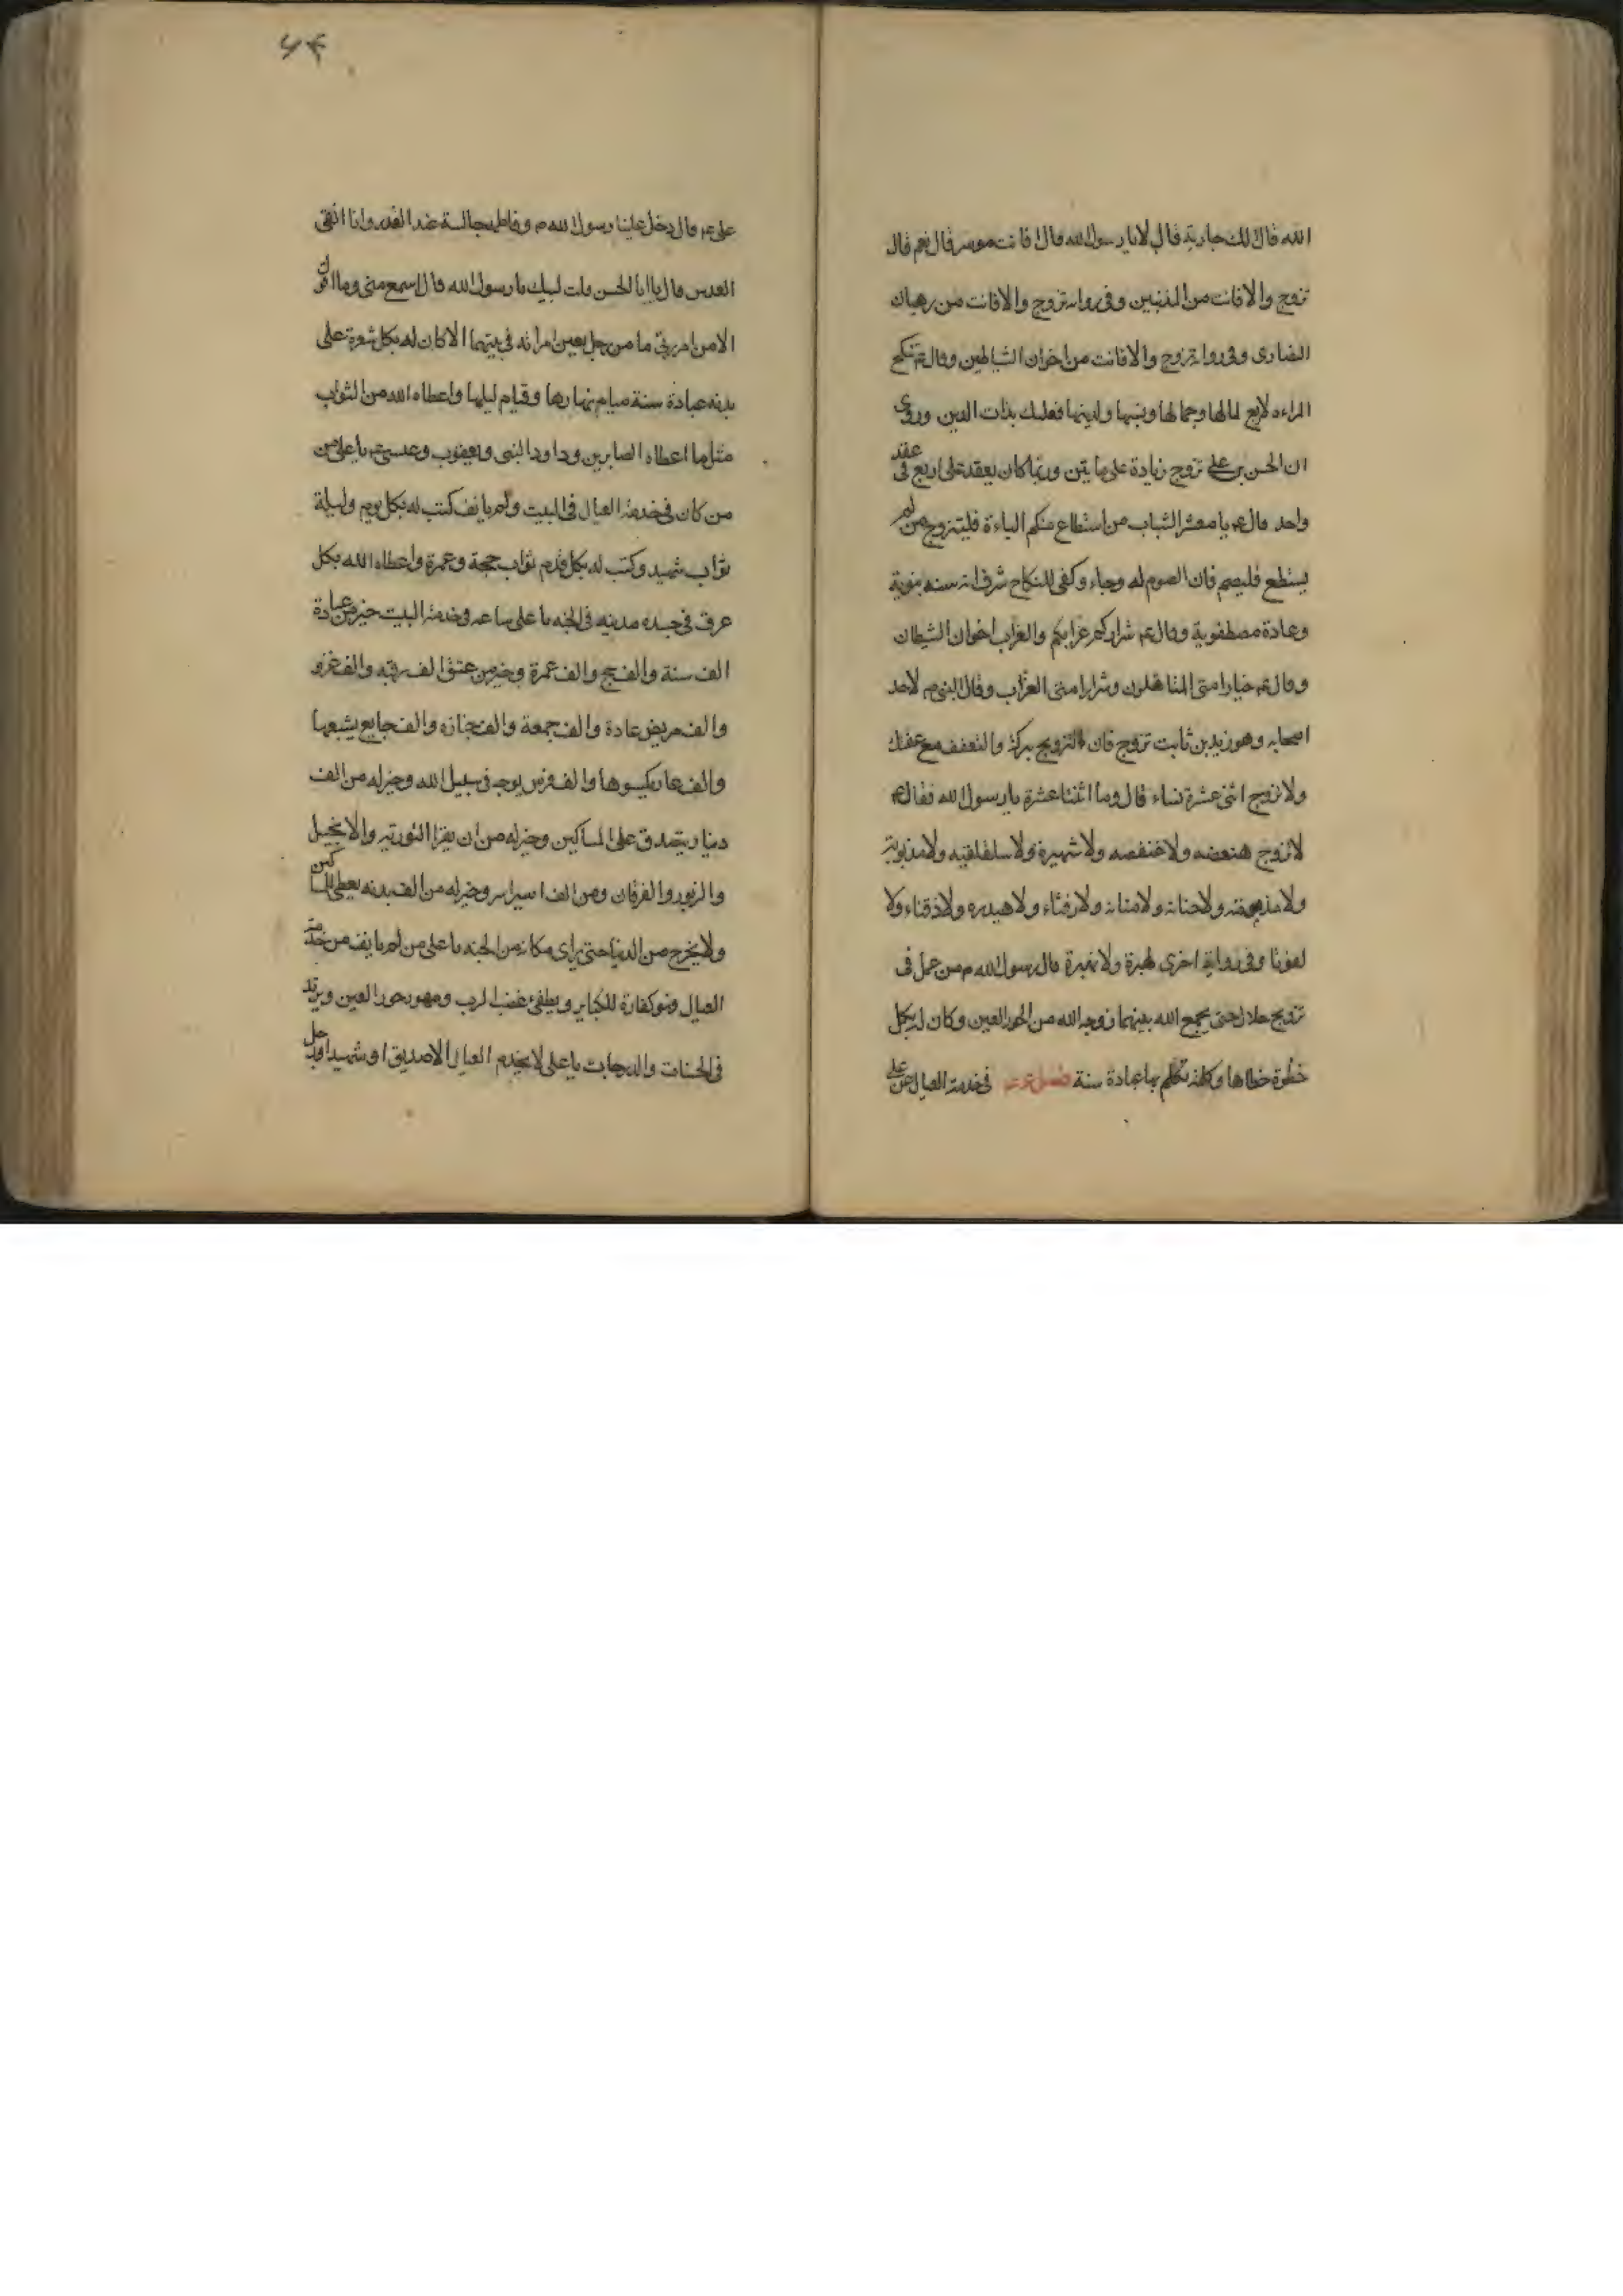 الله قال لك جارية قال لا يا رسول الله قال افانت موسر قال نعم قال
تزوج والا فانت من المذنبين وفى رواية تزوج والا فانت من رهبان
النصارى وفى رواية تزوج والا فانت من اخوان الشياطين وقال ع تنكح
المراءه لاربع لمالها وجمالها ونسبها ولدينها فعليك بذات الدين وروى
ان الحسن بن على تزوج زيادة على مايتين وربما كان يعقد على اربع فى عقد
واحد قال ع يا معشر الشباب من استطاع منكم الباءة فليتزوج ومن لم
يستطع فليصم فان الصوم له وجاء وكفى للنكاح شرفا انه سنه نبوية
وعادة مصطفوية وقال ع شراركم عزابكم والعزاب اخوان الشيطان
وقال ع خيار امتى المتاهلون وشرار امتى العزاب وقال النبى ص لاحد
اصحابه وهو زيد بن ثابت تزوج فان التزويج بركة والتعفف مع عفتك
ولا تزوج اثنى عشرة نساء قال وما اثنتا عشرة يا رسول الله فقال ع
لا تزوج هنفصه ولا عنفصه ولا شهبرة ولا سلفلقيه ولا مذبوبة
ولا مذمومة ولا حنانة ولا منانة ولا رفثاء ولا هيدره ولا ذقناء ولا
لفوتا وفى رواية اخرى لهبرة ولا نهبرة قال رسول الله ص من عمل فى
تزويج حلال حتى يجمع الله بينهما زوجه الله من الحور العين وكان له بكل
خطوة خطاها وكلمة تكلم بها عبادة سنة فى خدمة العيال عن على
٦٤
على ع قال دخل علينا رسول الله ص وفاطمه جالسة عند القدر وانا انقى
العدس قال يا ابا الحسن قلت لبيك يا رسول الله قال اسمع منى وما اقول
الا من امر ربى ما من رجل يعين امراته فى بيتها الا كان له بكل شعرة على
بدنه عبادة سنة صيام نهارها وقيام ليلها واعطاه الله من الثواب
مثل ما اعطاه الصابرين وداود النبى ويعقوب وعيسى ع يا على من
من كان فى خدمة العيال فى البيت ولم يانف كتب له بكل يوم وليلة
ثواب شهيد وكتب له بكل قدم ثواب حجة وعمرة واعطاه الله بكل
عرق فى جسده مدينه فى الجنه يا على ساعه فى خدمة البيت خير من عبادة
الف سنة والف حج والف عمرة وخير من عتق الف رقبه والف غزو
والف مريض عادة والف جمعة والف جنازه والف جايع يشبعها
والف عار يكسوها والف فرس يوجه فى سبيل الله وخير له من الف
دينار يتصدق على المساكين وخير له من ان يقرا التورتيه والانجيل
والزبور والفرقان ومن الف اسير اسر وخير له من الف بدنه يعطى للمساكين
ولا يخرج من الدنيا حتى يراى مكانه من الجنه يا على من لم يانف من خدمة
العيال فهو كفارة للكباير ويطفئ غضب الرب ومهور حور العين ويزيد
فى الحسنات والدرجات يا على لا يخدم العيال الا صديق او شهيد او رجل